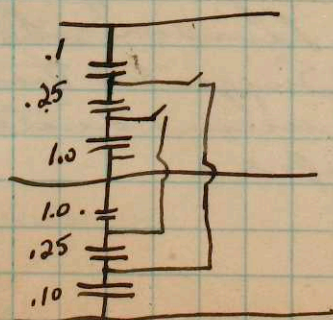 .1
.25
1.0
1.0
.25
.10